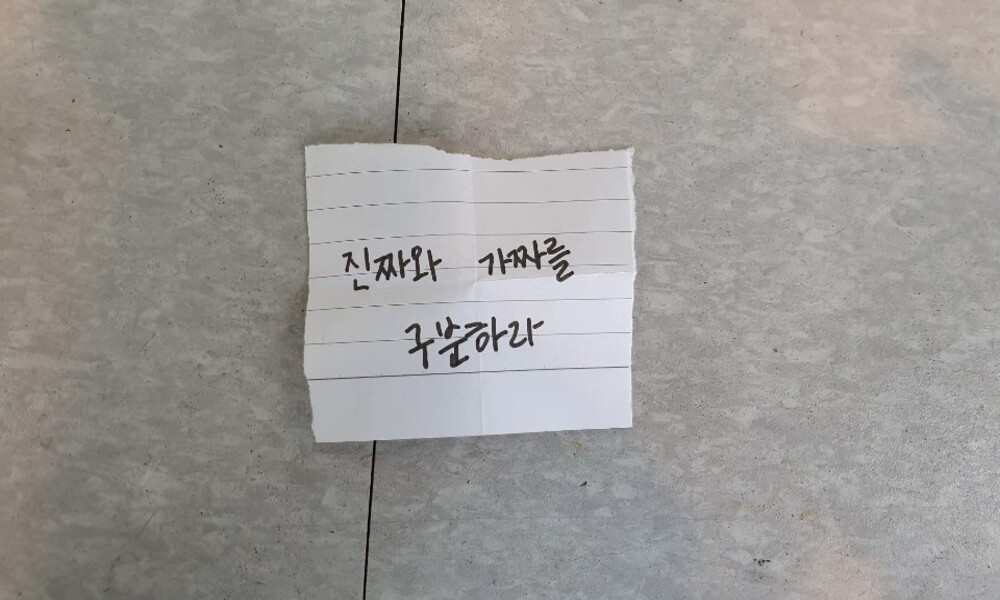 진짜와 가짜를
구분하라